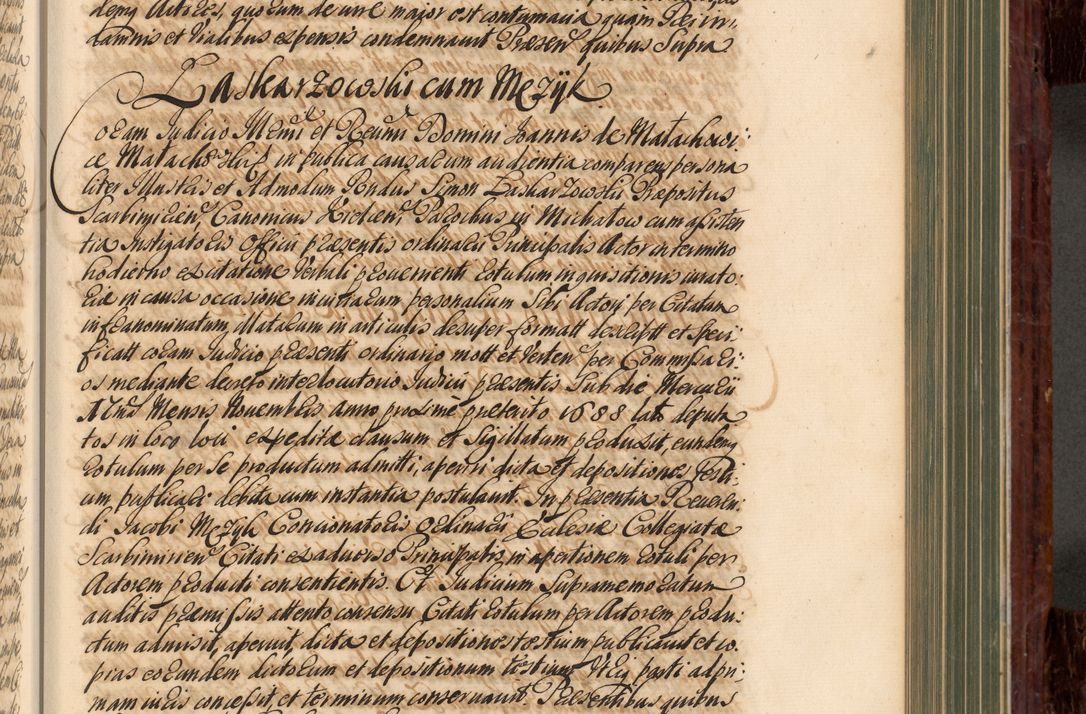 dem Actores, quorum de jure major est contumacia quam Rei in
damnis et vialibus expensis condemnavit Præsen. quibus Supra
Laskarzowski cum Mezyk
Coram Judicio Illmi et Rendmi Domini Joannis de Małachowi-
ce Małachowski in publica causarum audientia comparens persona
liter Illustris et Admodum Rendus Simon Laskarzowski Præpositus
Scarbimirien. Canonicus Kielcen. Parochus in Michałow cum assisten
tia Instigatoris Officii præsentis ordinarii Principalis Actor in termino
hodierno ex citatione verbali provenienti Rotulum inquisitionis jurato-
riæ in causa occasione injuriarum personalium Sibi Actori per Citatum
infranominatum illatarum in articulis desuper formatt descriptt et speci
ficatt coram Judicio præsenti ordinario mott et verten. per Commissari-
os mediante decreto interlocutorio Judicii præsentis Sub die Mercurii
17ma Mensis Novembris anno proxime præterito 1688 lato deputa
tos in loco loci expeditæ clausum et Sigillatum produxit, eundemq
Rotulum per se productum admitti, aperiri dicta et depositiones Testi-
um publicari debita cum instantia postulavit. In præsentia Reveren-
di Jacobi Mezyk Concionatoris Ordinarii Ecclesiæ Collegiatæ
Scarbimirien. Citati ex adverso Principalis in apertionem rotuli per
Actorem producti consentientis. Et Judicium Supramemoratum
auditis præmissis attento consensu Citati Rotulum per Actorem produ-
ctum admisit, aperuit, dicta et depositiones testium publicavit et co
pias eorundem dictorum et depositionum testium utriq parti ad pri-
mam juris concessit, et terminum conservavit. Præsentibus quibus